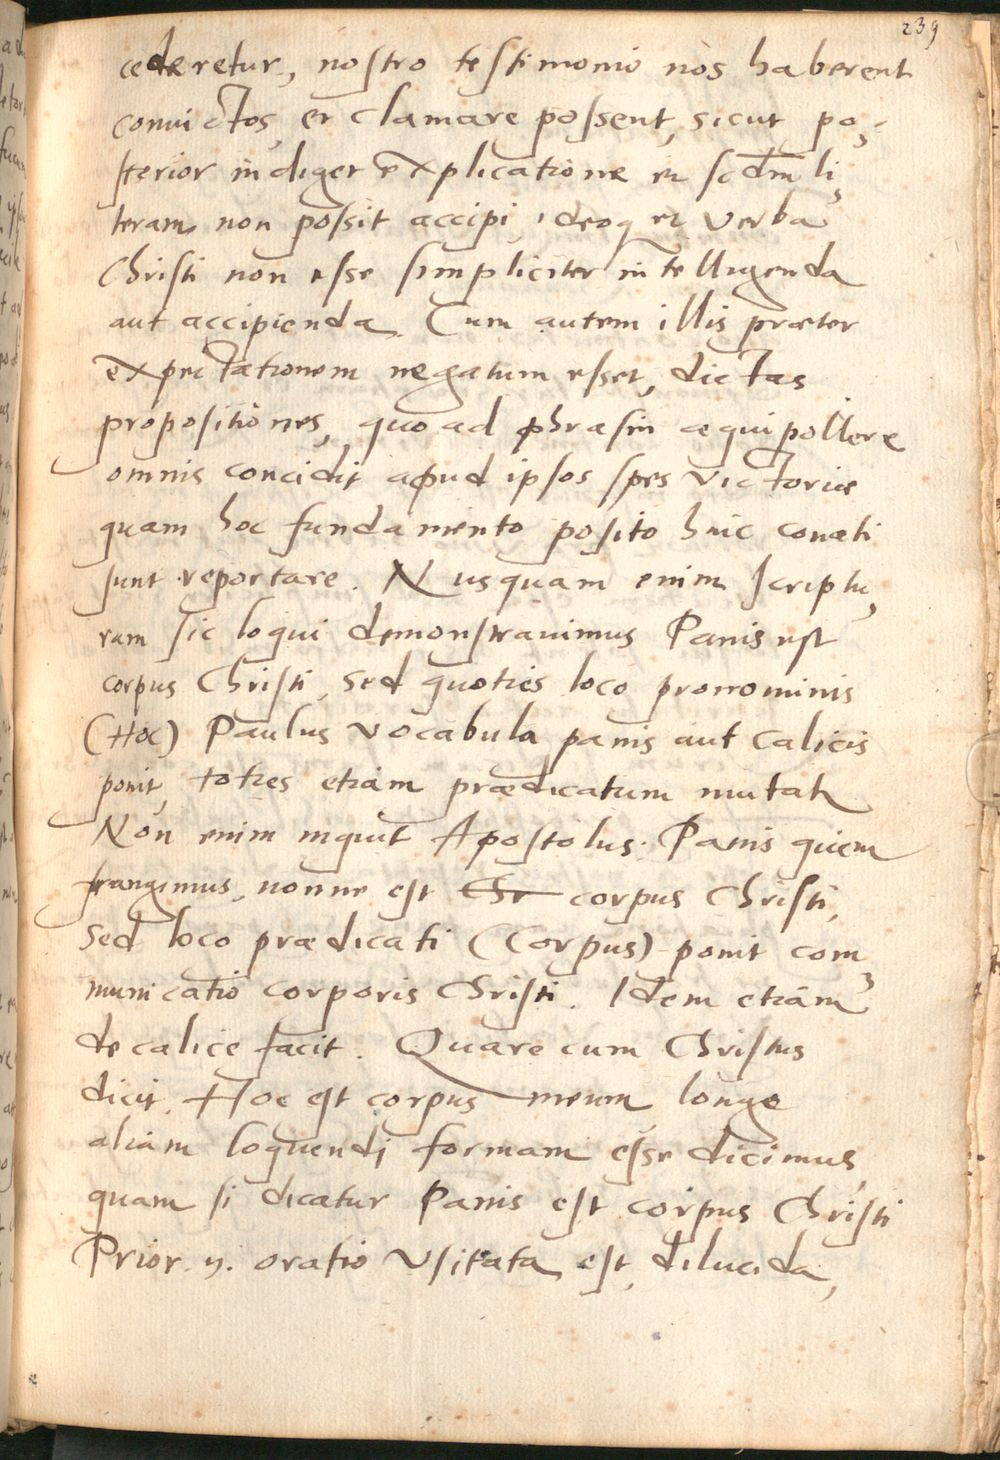 239
cederetur, nostro testimonio nos haberent
convictos, et clamare possent, sicut po,
sterior indiget explicatione et scdm li,
teram non possit accipi, ideoq et verba
Christi non esse simpliciter intelligenda
aut accipienda. Cum autem illis præter
expectationem negatum esset, dictas
propositiones, quo ad phrasin æquipollere
omnis concidit apud ipsos spes victoriæ
quam hoc fundamento posito huic conati
sunt reportare. Nusquam enim scriptu,
ram sic loqui demonstravimus Panis est
corpus Christi, sed quoties loco pronominis
(Hoc) Paulus vocabula panis aut calicis
ponit, toties etiam prædicatum mutat
Non enim inquit Apostolus. Panis quem
frangimus, nonne est Chr corpus Christi,
sed loco prædicati (Corpus) ponit com,
municatio corporis Christi. Idem etiam
de calice facit. Quare cum Christus
dicit, Hoc est corpus meum longe
aliam loquendi formam esse dicimus,
quam si dicatur Panis est corpus Christi
Prior .n. oratio usitata est, dilucida,